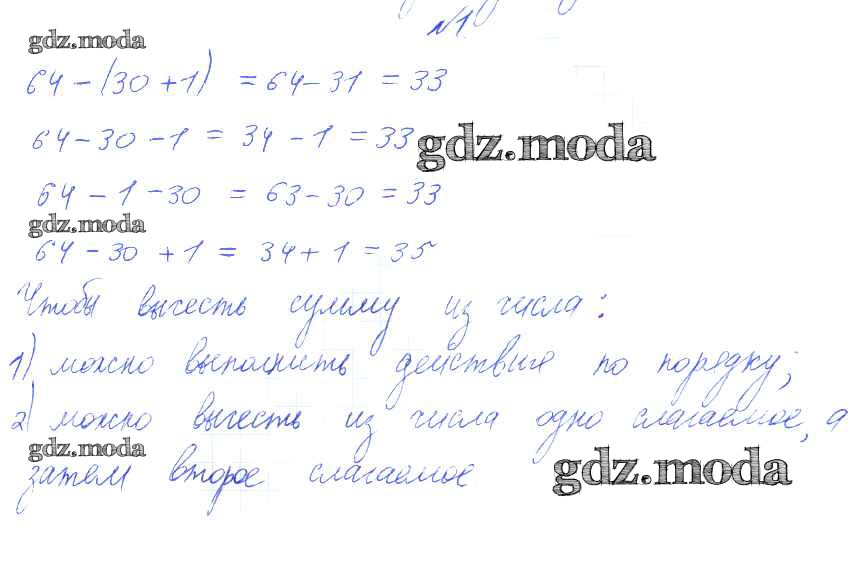 №1.
gdz.moda
64-(30+1) = 64-31 = 33
64-30-1 = 34-1 = 33
gdz.moda
64-1-30 = 63-30 = 33
gdz.moda
64-30+1 = 34+1 = 35
Чтобы вычесть сумму из числа:
1) можно выполнить действия по порядку;
2) можно вычесть из числа одно слагаемое, а
gdz.moda
затем второе слагаемое
gdz.moda